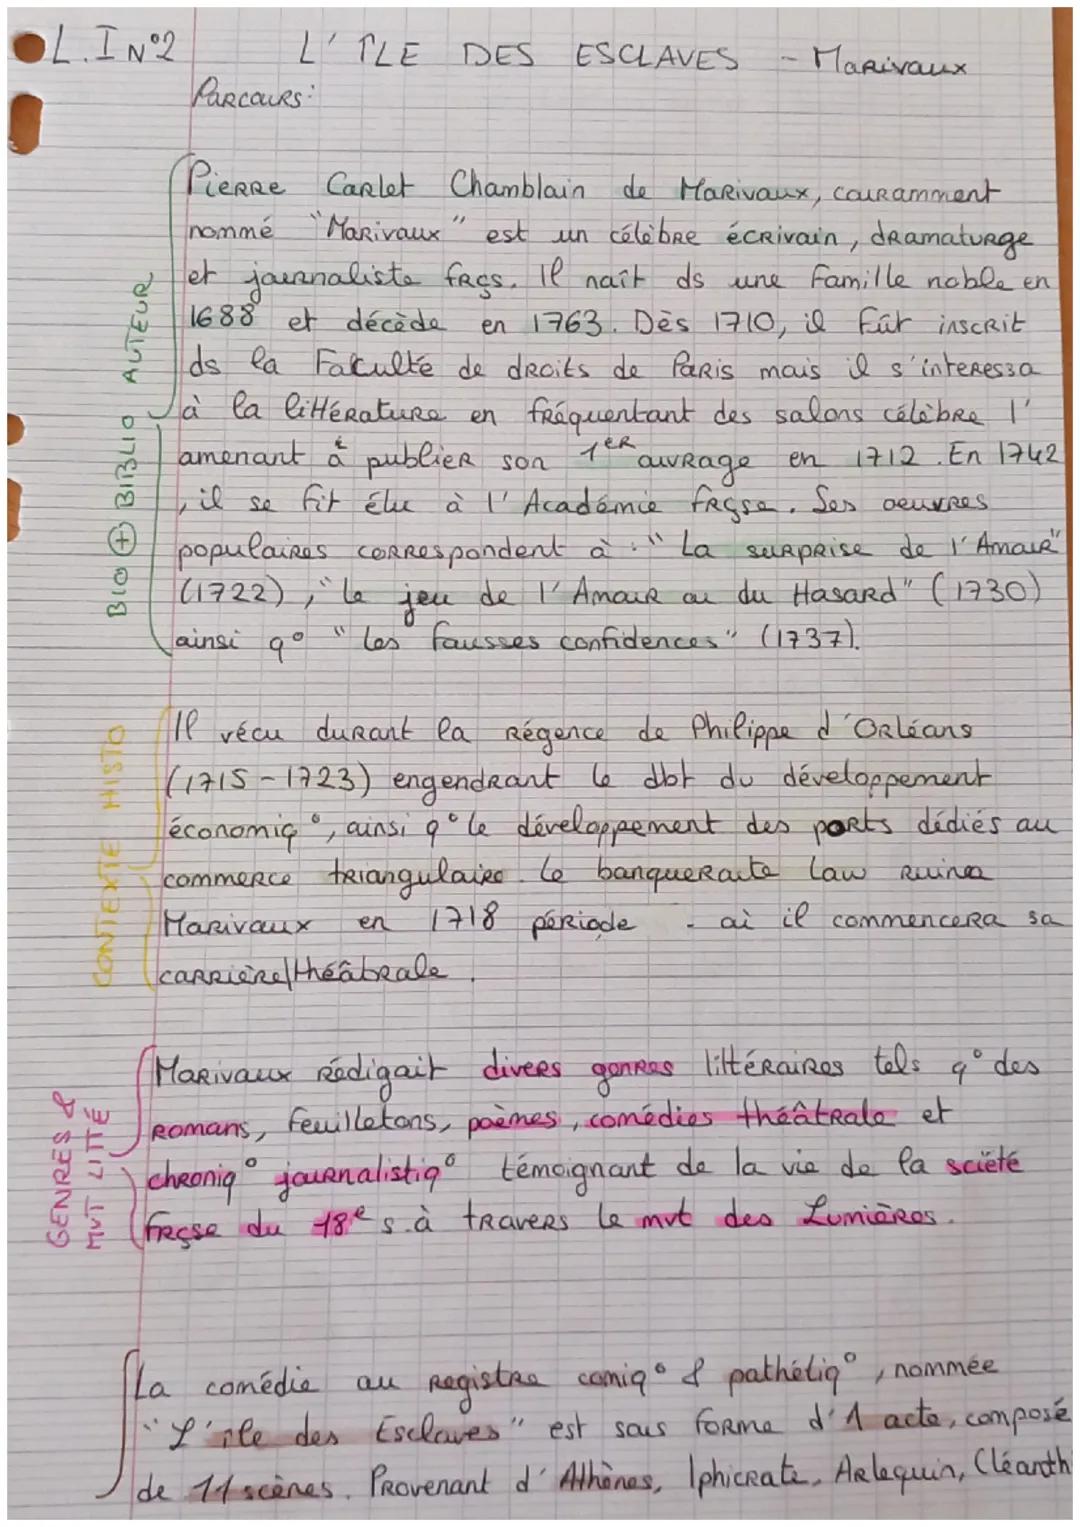 L.I N°2 L'ÎLE DES ESCLAVES - Marivaux
Parcours:
BIO + BIBLIO AUTEUR
Pierre Carlet Chamblain de Marivaux, couramment
nommé "Marivaux" est un célèbre écrivain, dramaturge
et journaliste frçs. Il naît ds une famille noble en
1688 et décède en 1763. Dès 1710, il fût inscrit
ds la Faculté de droits de Paris mais il s'interessa
à la littérature en fréquentant des salons célèbre l'
amenant à publier son 1er ouvrage en 1712. En 1742
, il se fit élu à l'Académie frçse. Ses oeuvres
populaires correspondent à : "La surprise de l'Amour"
(1722), "le jeu de l'Amour ou du Hasard" (1730)
ainsi q° "les fausses confidences" (1737).
CONTEXTE HISTO
Il vécu durant la régence de Philippe d'Orléans
(1715-1723) engendrant le dbt du développement
économiq°, ainsi q° le développement des ports dédiés au
commerce triangulaire. Le banqueroute Law ruina
Marivaux en 1718 période où il commencera sa
carrière théâtrale.
GENRES &
MVT LITTÉ
Marivaux rédigait divers genres littéraires tels q° des
romans, feuilletons, poèmes, comédies théâtrale et
chroniq° journalistiq° témoignant de la vie de la sciété
frçse du 18e s. à travers le mvt des Lumières.
La comédie au registre comiq° & pathétiq°, nommée
"L'île des Esclaves" est sous forme d'1 acte, composé
de 11 scènes. Provenant d'Athènes, Iphicrate, Arlequin, Cléanth